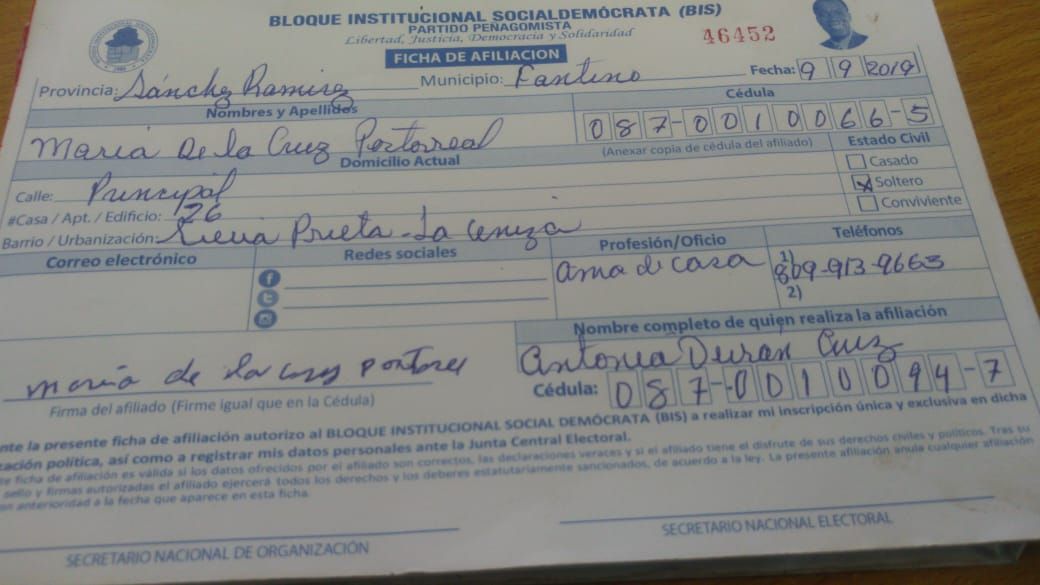 BLOQUE INSTITUCIONAL SOCIALDEMÓCRATA (BIS)
PARTIDO PEÑAGOMISTA
Libertad, Justicia, Democracia y Solidaridad
46452
FICHA DE AFILIACION
Provincia: Sánchez Ramirez Municipio: Fantino Fecha: 9 9 2019
Nombres y Apellidos Cédula
Maria De la Cruz Portorreal 087-0010066-5
(Anexar copia de cédula del afiliado) Estado Civil
Domicilio Actual
Casado
Calle: Principal Soltero
#Casa / Apt. / Edificio: 26 Conviviente
Barrio / Urbanización: Prieta - La Ceniza
Correo electrónico Redes sociales Profesión/Oficio Teléfonos
ama de casa 1) 809-913-9663
2)
Nombre completo de quien realiza la afiliación
Antonia Durán Cruz
maría de la cruz
Cédula: 087-0010094-7
Firma del afiliado (Firme igual que en la Cédula)
nte la presente ficha de afiliación autorizo al BLOQUE INSTITUCIONAL SOCIAL DEMÓCRATA (BIS) a realizar mi inscripción única y exclusiva en dicha
zación política, así como a registrar mis datos personales ante la Junta Central Electoral.
te ficha de afiliación es válida si los datos ofrecidos por el afiliado son correctos, las declaraciones veraces y si el afiliado tiene el disfrute de sus derechos civiles y políticos. Tras su
sello y firmas autorizadas el afiliado ejercerá todos los derechos y los deberes estatutariamente sancionados, de acuerdo a la ley. La presente afiliación anula cualquier afiliación
on anterioridad a la fecha que aparece en esta ficha.
SECRETARIO NACIONAL DE ORGANIZACIÓN SECRETARIO NACIONAL ELECTORAL